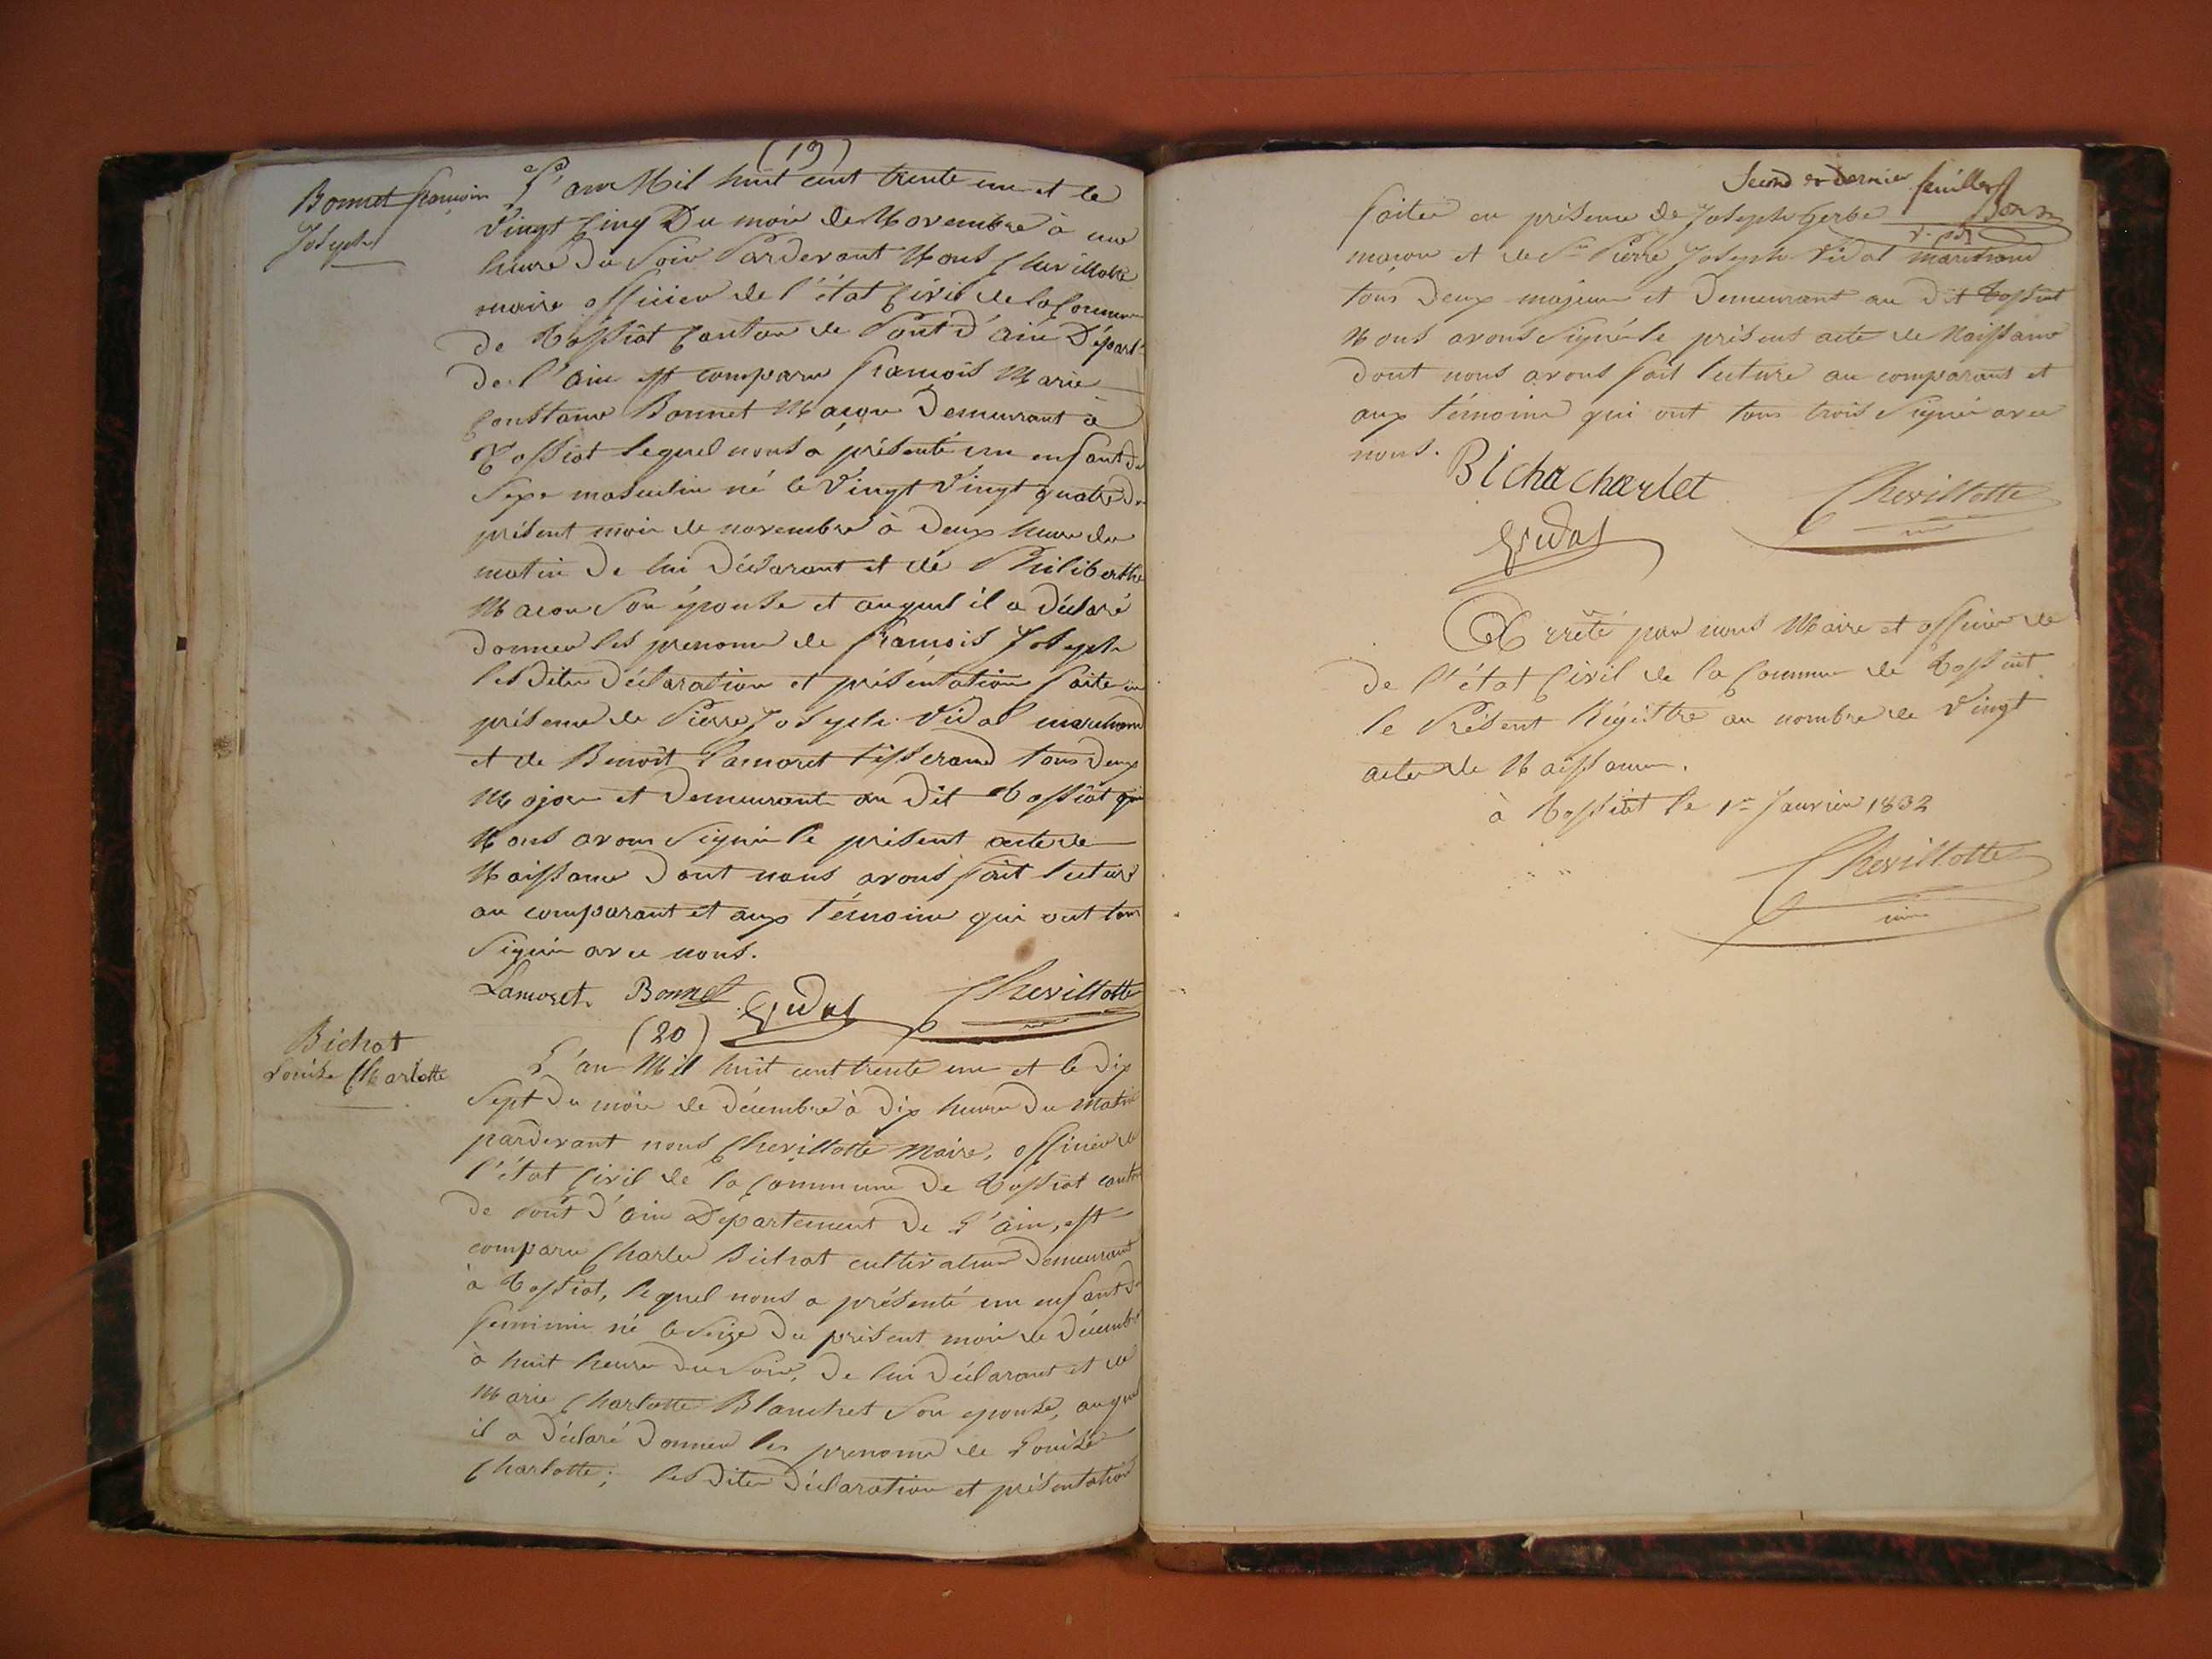 (19)
Bonnet françois
Joseph
L'an Mil huit cent trente un et le
vingt cinq Du mois de Novembre à une
heure Du Soir Pardevant Nous Chevillotte
maire officier de l'état Civil de la Commune
de Tossiat Canton de Pont d'ain Départ.
De l'ain est comparu françois Marie
Constance Bonnet Maçon Demeurant à
Tossiat lequel nous a présenté un enfant du
Sexe masculin né le vingt vingt quatre du
présent mois de novembre à Deux heures du
matin De lui Déclarant et de Philiberthe
Macon Son épouse et auquel il a Déclaré
Donner les prenoms de françois Joseph
les Dites Déclaration et présentation faites en
présence de Pierre Joseph Vidal marchand
et de Benoit Lamoret tisserand tous Deux
Majeurs et Demeurants au Dit Tossiat qui
Nous avons Signés le présent acte de
Naissance Dont nous avons fait lecture
au comparant et aux témoins qui ont tous
Signés avec nous.
Lamoret Bonnet Vidal Chevillotte
(20)
Bichat
Louise Charlotte
L'an Mil huit cent trente un et le Dix
Sept Du mois de Décembre à Dix heures Du Matin
pardevant nous Chevillotte Maire, officier de
l'état Civil de la Commune De Tossiat canton
De Pont D'ain Département De L'ain, est
comparu Charles Bichat cultivateur Demeurant
à Tossiat, lequel nous a présenté un enfant de
feminin né le Seize Du présent mois de Décembre
à huit heures Du Soir, De lui Déclarant et de
Marie Charlotte Blanchet Son epouse, auquel
il a Déclaré Donner les prenoms de Louise
Charlotte; les Dites Déclaration et présentation
Second et dernier feuillet
faites en présence de Joseph Gerbe
maçon et de Sr Pierre Joseph Vidal marchand
tous Deux majeurs et Demeurant au Dit Tossiat
Nous avons Signé le présent acte de Naissance
Dont nous avons fait lecture au comparant et
aux témoins qui ont tous trois Signés avec
nous.
Bicha charlet Chevillotte
Vidal
Arrêté par nous Maire et officier de
De l'état Civil de la Commune de Tossiat
le Présent Régistre au nombre de Vingt
actes de Naissances.
à Tossiat le 1er Janvier 1832
Chevillotte